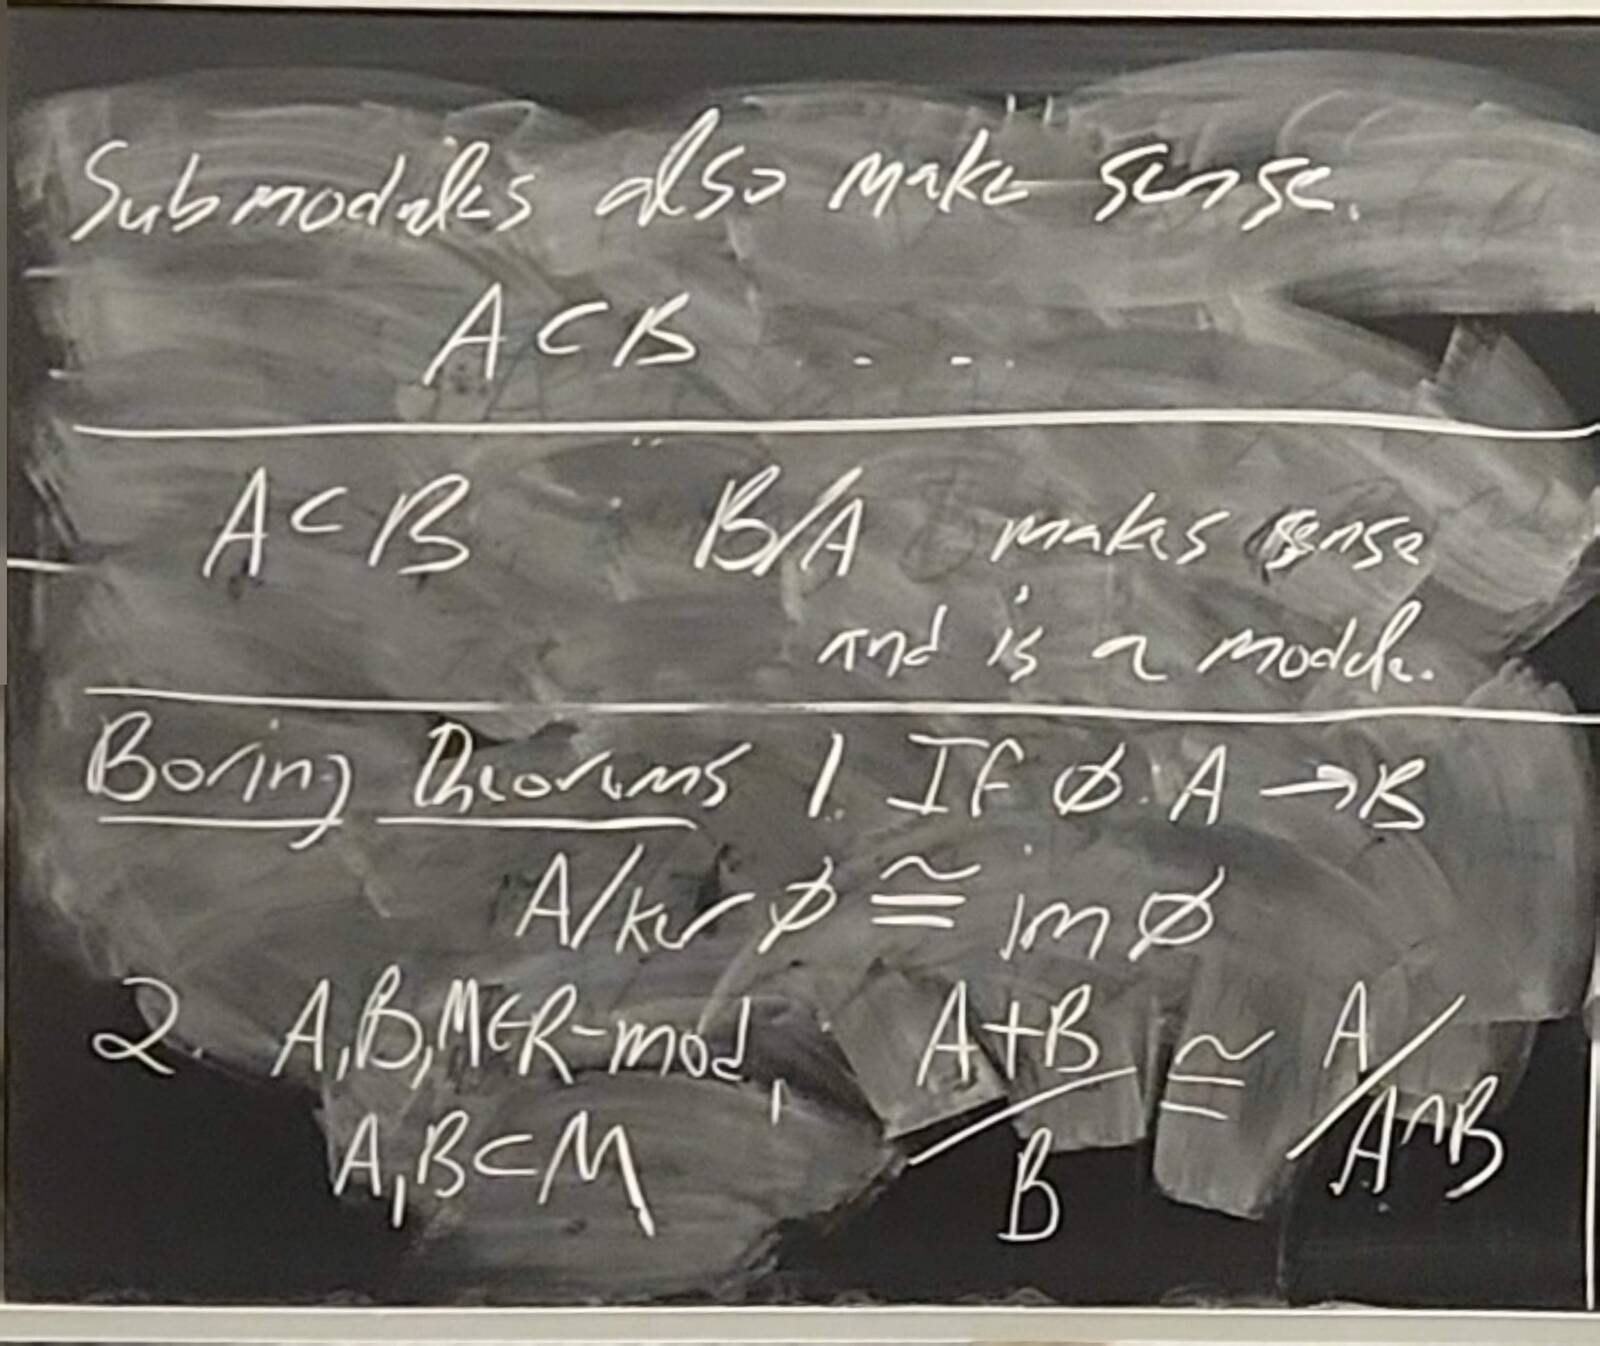 Submodules also make sense.
A ⊂ B . . - - .
A ⊂ B B/A makes sense
and is a module.
Boring Theorems 1. If ϕ: A → B
A/ker ϕ ≅ im ϕ
2. A,B,M∈R-mod, A+B/B ≅ A/A∩B
A,B⊂M